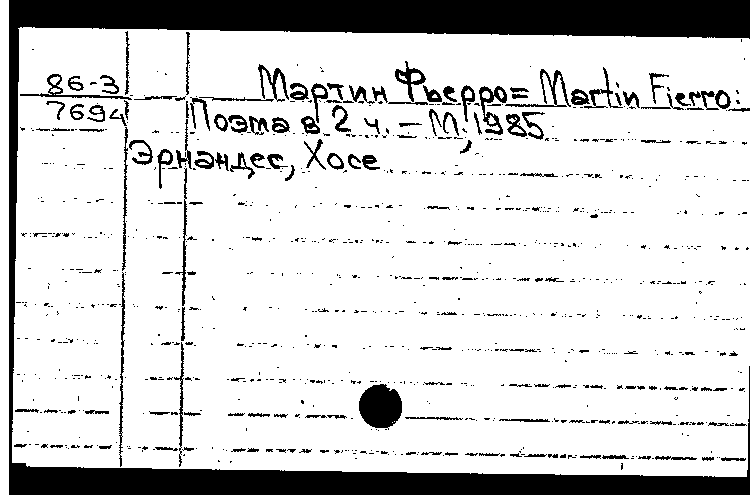 86-3 Мартин Фьерро = Martin Fierro:
7694 Поэма в 2 ч. – М., 1985
Эрнандес, Хосе